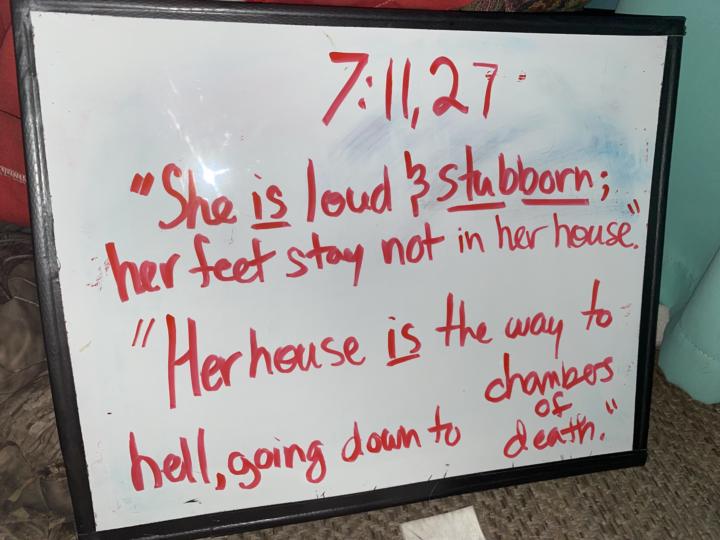 7:11,27
"She is loud & stubborn;
her feet stay not in her house."
"Her house is the way to
hell, going down to chambers
of
death."